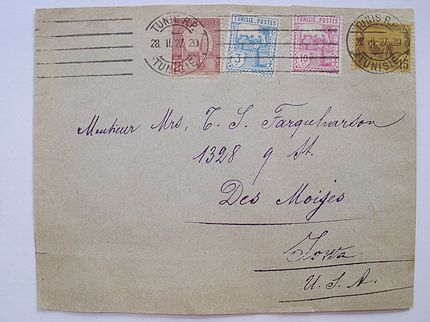 TUNIS R.P.
28. II. 27. 20
TUNISIE
TUNISIE.POSTES
3
TUNISIE.POSTES
10
TUNIS R.P.
28. II. 27. 20
TUNISIE
15
Monsieur Mrs, T. S. Farquharson
1328 9 St.
Des Moijes
Iowa
U.S.A.